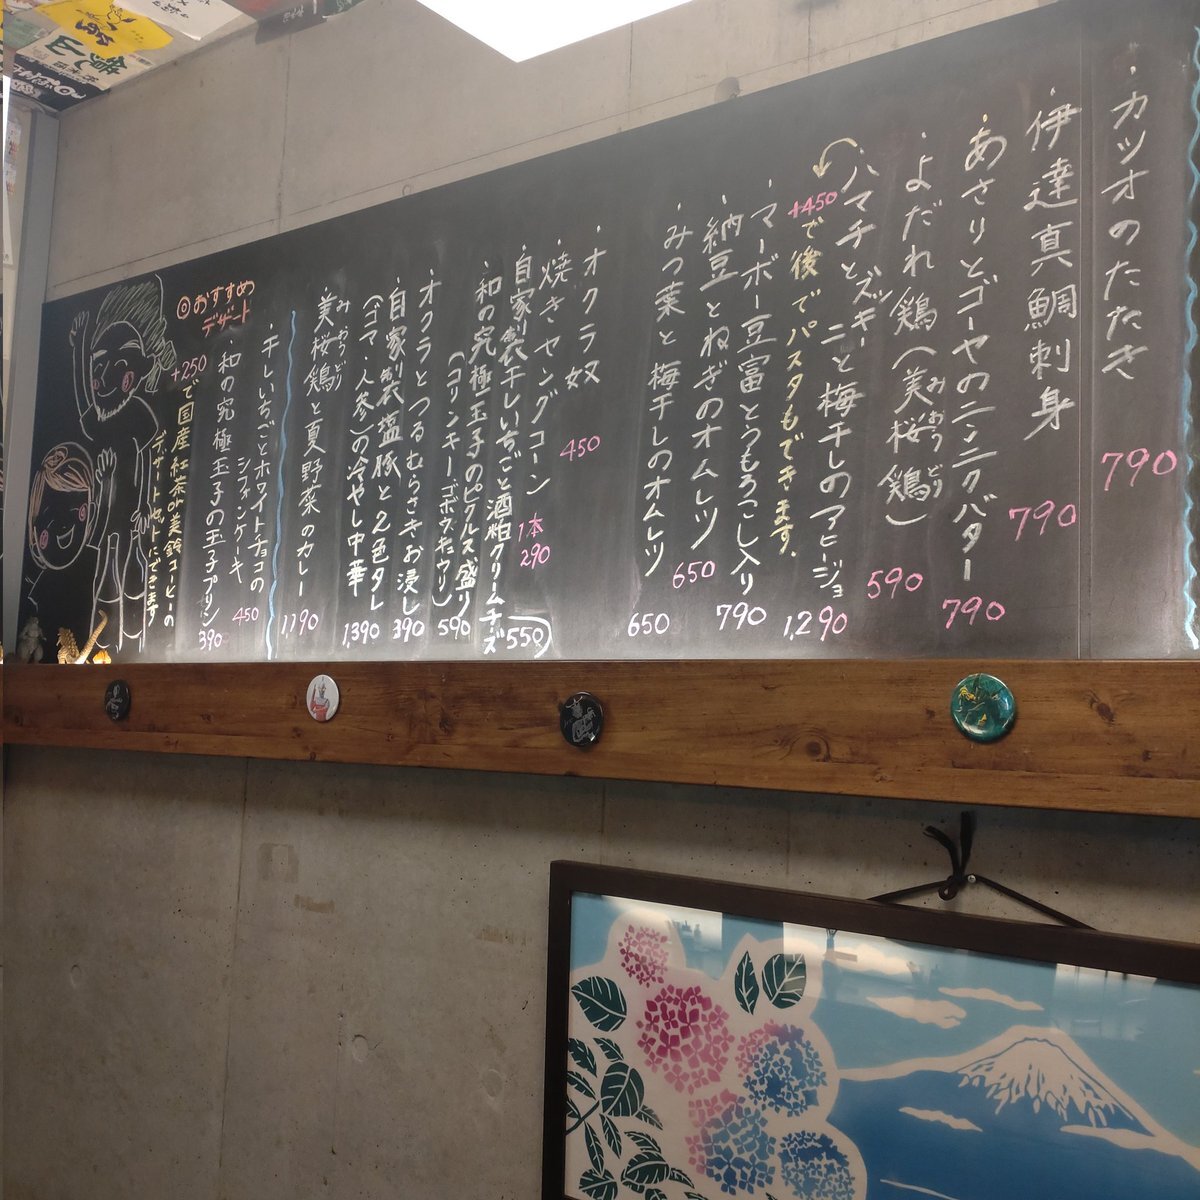 ・カツオのたたき 790
・伊達真鯛刺身 790
・あさりとゴーヤのニンニクバター 790
・よだれ鶏(美桜鶏) 590
みおうどり
・ハマチとズッキーニと梅干しのアヒージョ 1,290
+450で後でパスタもできます.
・マーボー豆富とうもろこし入り 790
・納豆とねぎのオムレツ 650
・みつ葉と梅干しのオムレツ 650
・オクラ奴 450
・焼きヤングコーン 1本 290
・自家製干しいちごと酒粕クリームチーズ 550
・和の究極玉子のピクルス盛り 590
(コリンキー・ゴボウ・キュウリ)
・オクラとつるむらさきお浸し 390
・自家製塩豚と2色タレ
(ゴマ・人参)の冷やし中華 1,390
みおうどり
・美桜鶏と夏野菜のカレー 1,190
◎おすすめ
デザート
・干しいちごとホワイトチョコの
シフォンケーキ 450
・和の究極玉子の玉子プリン 390
+250で国産紅茶or美鈴コーヒーの
デザートセットにできます